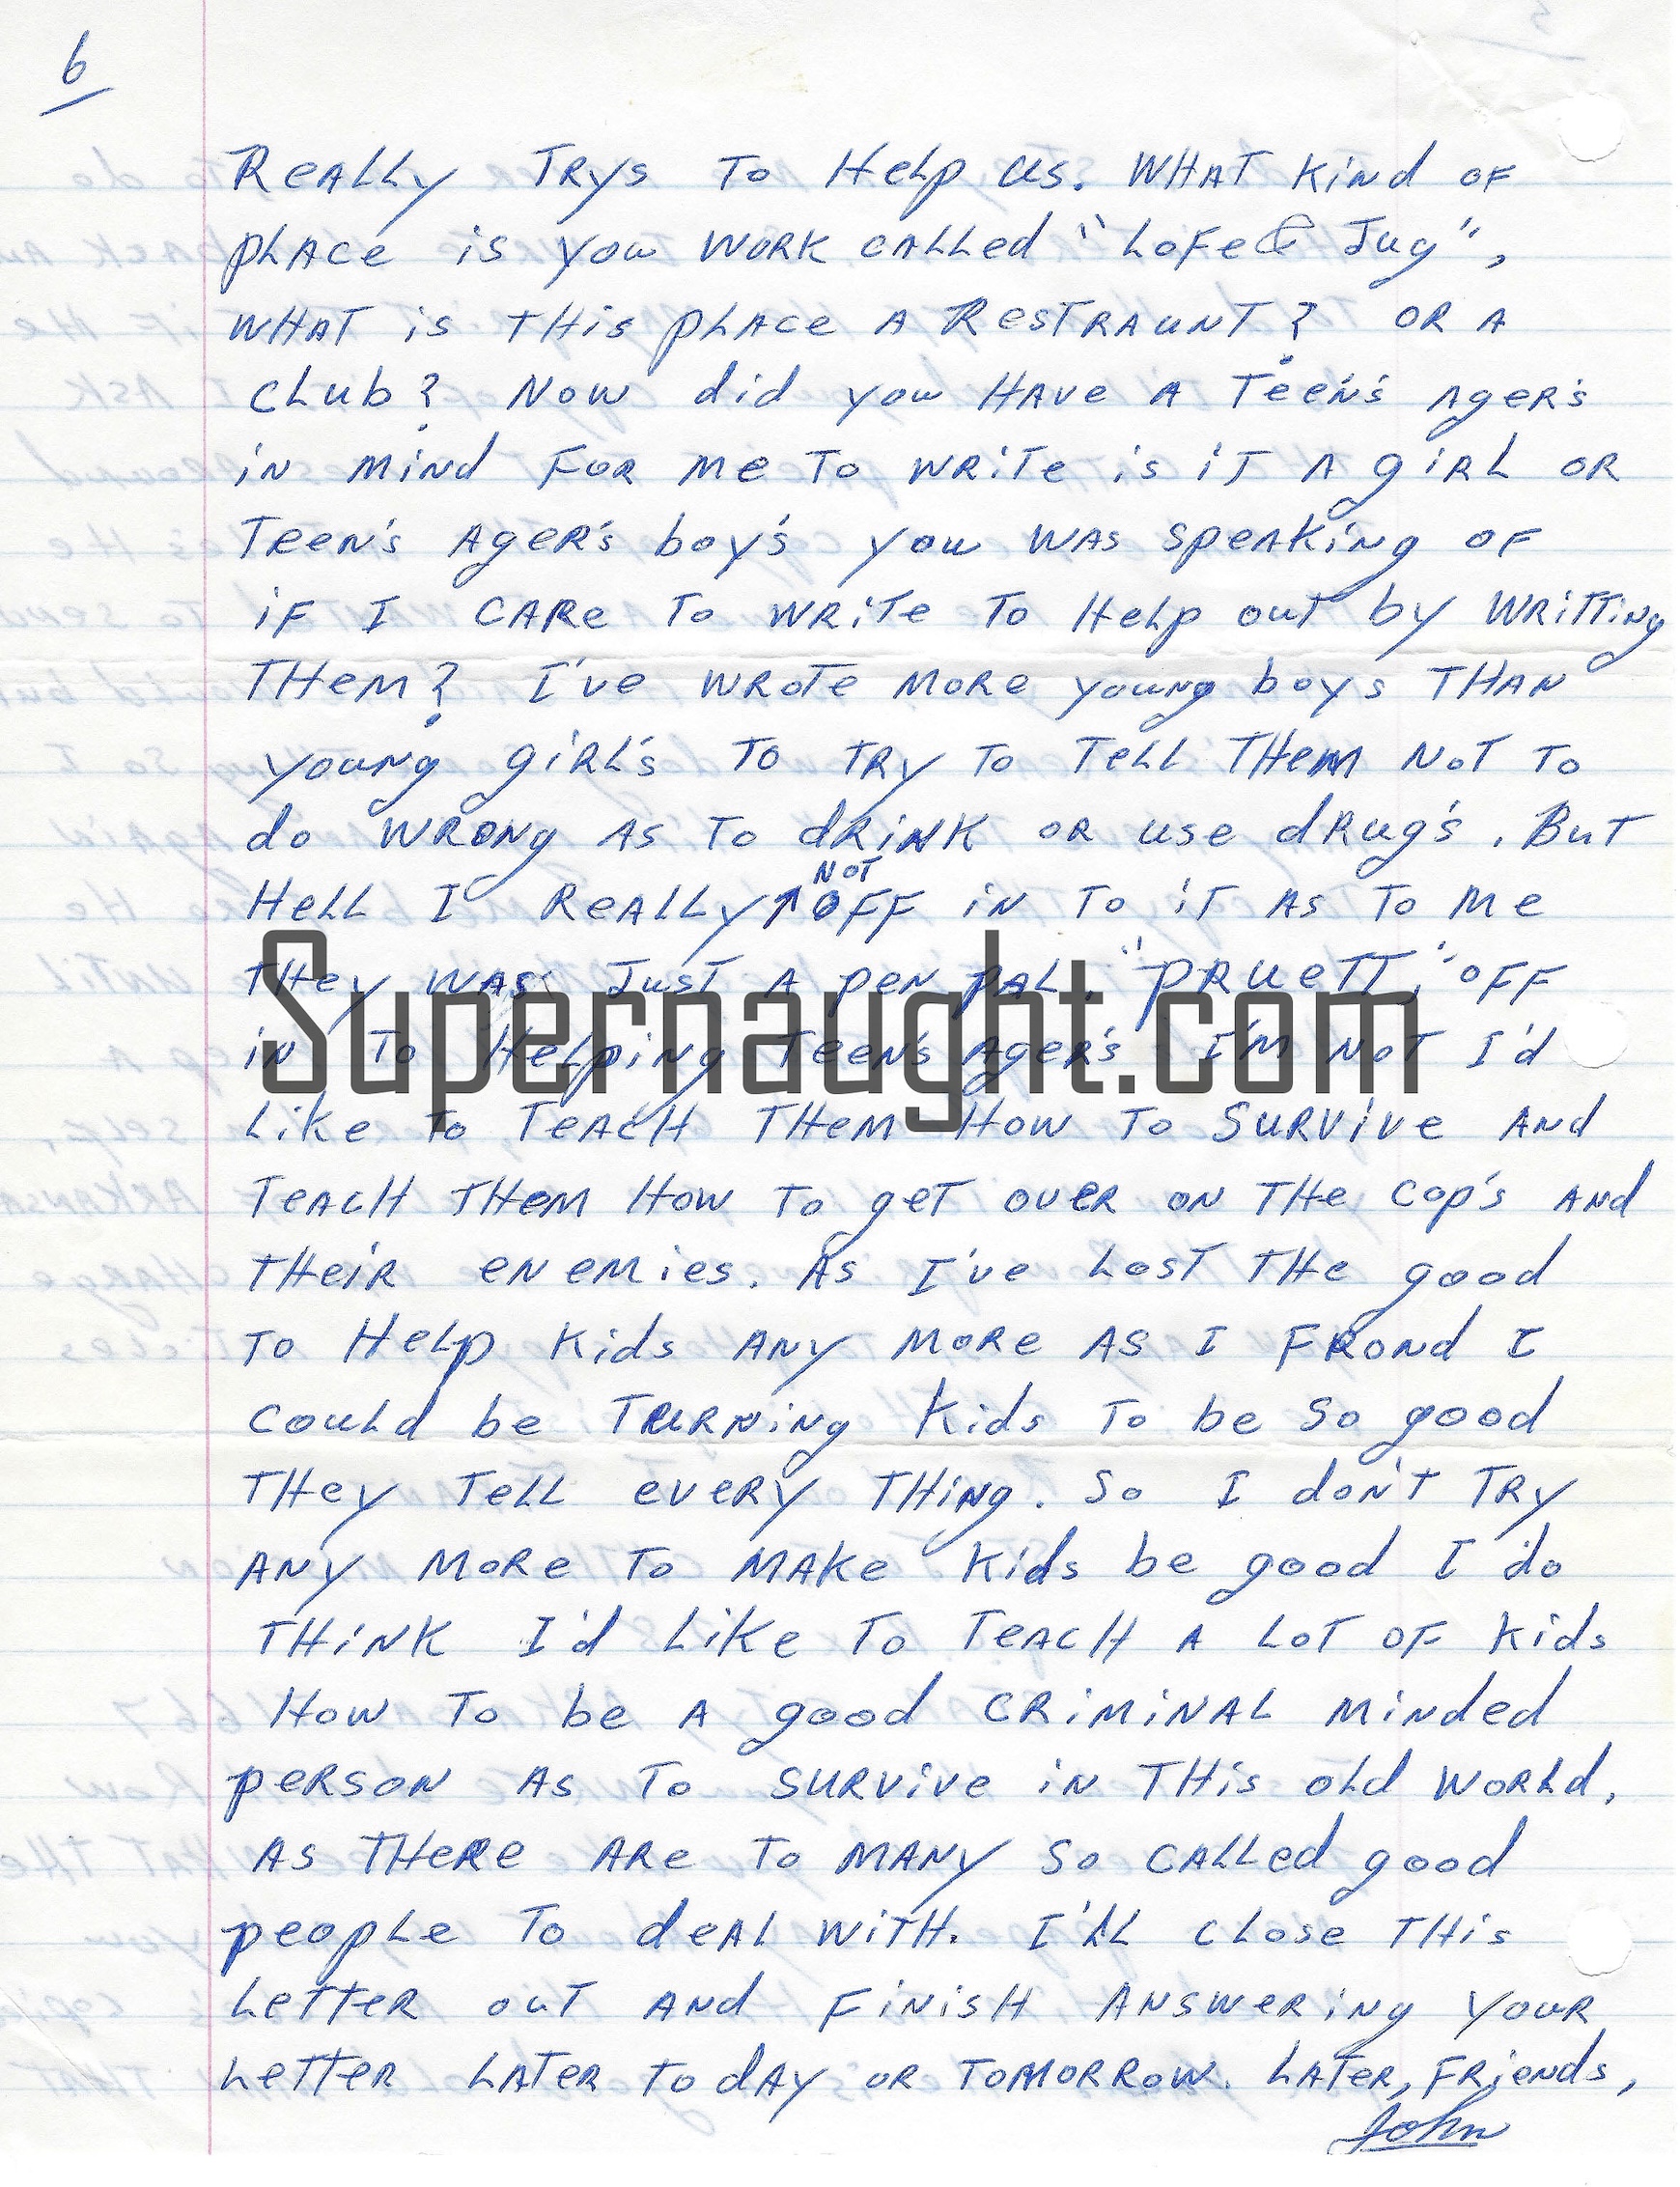 6
Really Trys To Help us. What kind of
place is you work called "Lofe & Jug",
what is this place a Restraunt? or a
club? Now did you have a Teen's ager's
in mind for me to write is it a girl or
Teen's ager's boy's you was speaking of
if I care to write to help out by writting
them? I've wrote more young boys than
young girl's to try to tell them not to
do wrong as to drink or use drug's. But
Hell I really ↑ off in to it as to me
not
they was just a pen pal. "Pruett," off
in to helping teens ager's I'm not I'd
like to teach them how to survive and
teach them how to get over on the cop's and
their enemies. As I've lost the good
to help kids any more as I frond I
could be turning kids to be so good
they tell every thing. So I don't try
any more to make kids be good I do
think I'd like to teach a lot of kids
how to be a good criminal minded
person as to survive in this old world,
as there are to many so called good
people to deal with. I'll close this
letter out and finish answering your
letter later today or tomorrow. Later, Friends,
John
Supernaught.com